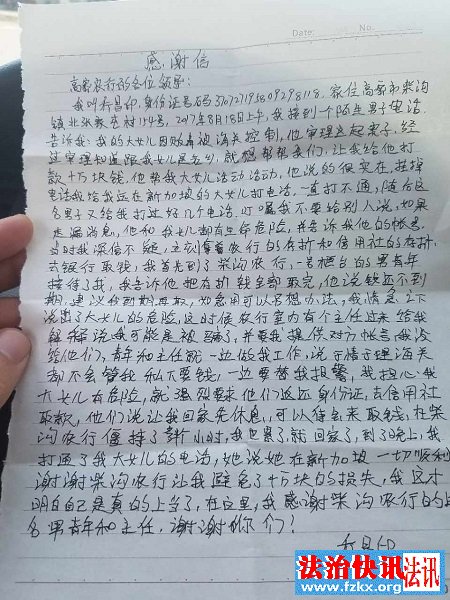 Date: No.
感谢信
高密农行的各位领导:
我叫 昌印,身份证号码370727195809298118,家住高密市柴沟
镇北张家庄村114号,2017年8月18日上午,我接到一个陌生男子电话
告诉我:我的大女儿因贩毒被海关控制,他审理这起案子,经
过审理知道跟我女儿无关,就想帮帮我们,让我给他打
款十万块钱,他帮我大女儿活动活动,他说的很实在,挂掉
电话我给我远在新加坡的大女儿打电话,一直打不通,随后这
名男子又给我打过好几个电话,叮嘱我不要给别人说,如果
走漏消息,他和我女儿都有生命危险,并告诉我他的帐号,
当时我深信不疑,立刻拿着农行的存折和信用社的存折,
去银行取钱,我首先到了柴沟农行,一号柜台的男青年
接待了我,我告诉他把存折钱全部取完,他说钱还不到
期,建议我到期再取,如急用可以另想办法,我情急之下
说出了大女儿的危险,这时候农行室内有个主任过来给我
解释说我可能是被骗了,并要我提供对方帐号,我没
给他们,青年和主任就一边做我工作,说于情于理海关
都不会管我私下要钱,一边要替我报警,我担心我
大女儿有危险,就强烈要求他们返还身份证,去信用社
取款,他们说让我回家先休息,可以待会来取钱,在柴
沟农行僵持了 小时,我也累了,就回家了,到了晚上,我
打通了我大女儿的电话,她说她在新加坡一切顺利
谢谢柴沟农行让我避免了十万块的损失,我这才
明白自己是真的上当了,在这里,我感谢柴沟农行的1
名男青年和主任,谢谢你们!
昌印
法治快讯 法讯
www.fzkx.org